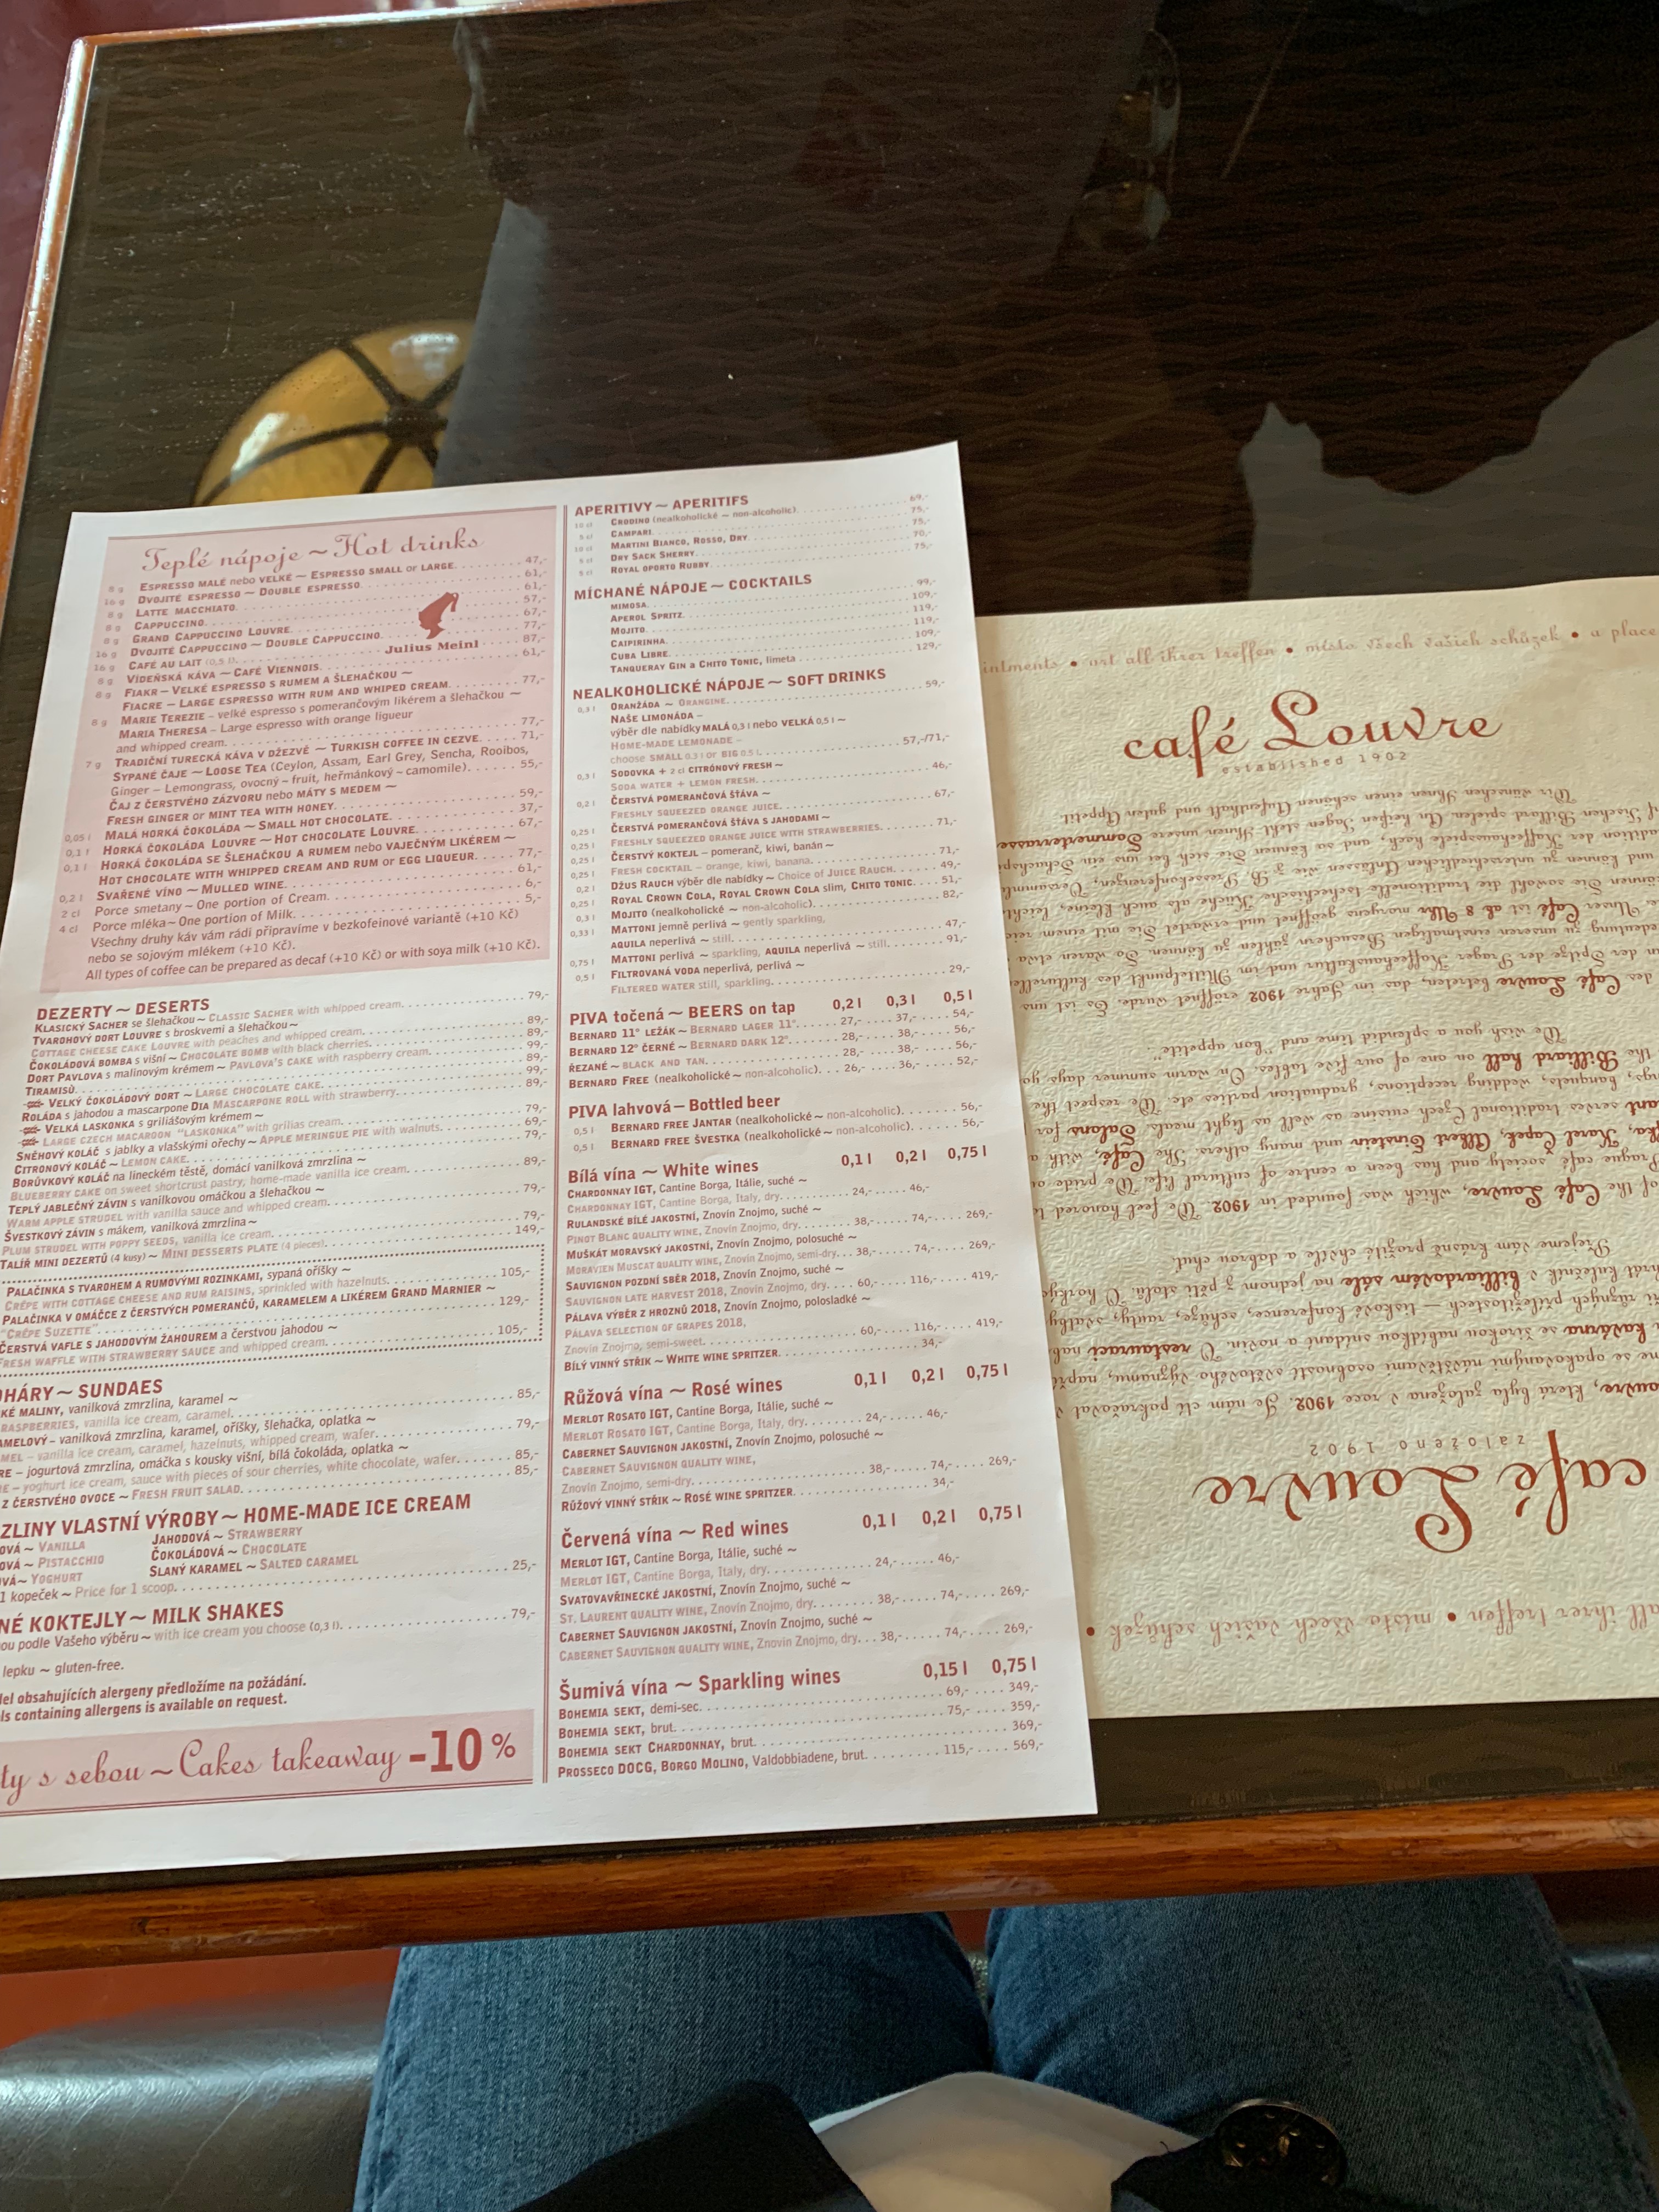 Teplé nápoje ~ Hot drinks
8 g ESPRESSO MALÉ nebo VELKÉ ~ ESPRESSO SMALL or LARGE 47,-
16 g DVOJITÉ ESPRESSO ~ DOUBLE ESPRESSO 61,-
8 g LATTE MACCHIATO 61,-
8 g CAPPUCCINO 57,-
8 g GRAND CAPPUCCINO LOUVRE 67,-
16 g DVOJITÉ CAPPUCCINO ~ DOUBLE CAPPUCCINO 77,-
16 g CAFÉ AU LAIT (0,5 l) 87,-
Julius Meinl
8 g VÍDEŇSKÁ KÁVA ~ CAFÉ VIENNOIS 61,-
8 g FIAKR – VELKÉ ESPRESSO S RUMEM A ŠLEHAČKOU ~
FIACRE – LARGE ESPRESSO WITH RUM AND WHIPED CREAM 77,-
8 g MARIE TEREZIE – velké espresso s pomerančovým likérem a šlehačkou ~
MARIA THERESA – Large espresso with orange ligueur
and whipped cream 77,-
7 g TRADIČNÍ TURECKÁ KÁVA V DŽEZVĚ ~ TURKISH COFFEE IN CEZVE 71,-
SYPANÉ ČAJE ~ LOOSE TEA (Ceylon, Assam, Earl Grey, Sencha, Rooibos,
Ginger – Lemongrass, ovocný – fruit, heřmánkový – camomile) 55,-
ČAJ Z ČERSTVÉHO ZÁZVORU nebo MÁTY S MEDEM ~
FRESH GINGER or MINT TEA WITH HONEY 59,-
0,05 l MALÁ HORKÁ ČOKOLÁDA ~ SMALL HOT CHOCOLATE 37,-
0,1 l HORKÁ ČOKOLÁDA LOUVRE ~ HOT CHOCOLATE LOUVRE 67,-
0,1 l HORKÁ ČOKOLÁDA SE ŠLEHAČKOU A RUMEM nebo VAJEČNÝM LIKÉREM ~
HOT CHOCOLATE WITH WHIPPED CREAM AND RUM or EGG LIQUEUR 77,-
0,2 l SVAŘENÉ VÍNO ~ MULLED WINE 61,-
2 cl Porce smetany ~ One portion of Cream 6,-
4 cl Porce mléka ~ One portion of Milk 5,-
Všechny druhy káv vám rádi připravíme v bezkofeinové variantě (+10 Kč)
nebo se sojovým mlékem (+10 Kč).
All types of coffee can be prepared as decaf (+10 Kč) or with soya milk (+10 Kč).
DEZERTY ~ DESERTS
KLASICKÝ SACHER se šlehačkou ~ CLASSIC SACHER with whipped cream 79,-
TVAROHOVÝ DORT LOUVRE s broskvemi a šlehačkou ~
COTTAGE CHEESE CAKE LOUVRE with peaches and whipped cream 89,-
ČOKOLÁDOVÁ BOMBA s višní ~ CHOCOLATE BOMB with black cherries 89,-
DORT PAVLOVA s malinovým krémem ~ PAVLOVA'S CAKE with raspberry cream 99,-
TIRAMISÙ 89,-
VELKÝ ČOKOLÁDOVÝ DORT ~ LARGE CHOCOLATE CAKE 99,-
ROLÁDA s jahodou a mascarpone DIA MASCARPONE ROLL with strawberry 89,-
VELKÁ LASKONKA s griliášovým krémem ~
LARGE CZECH MACAROON "LASKONKA" with grilias cream 79,-
SNĚHOVÝ KOLÁČ s jablky a vlašskými ořechy ~ APPLE MERINGUE PIE with walnuts 69,-
CITRONOVÝ KOLÁČ ~ LEMON CAKE 79,-
BORŮVKOVÝ KOLÁČ na lineckém těstě, domácí vanilková zmrzlina ~
BLUEBERRY CAKE on sweet shortcrust pastry, home-made vanilla ice cream 89,-
TEPLÝ JABLEČNÝ ZÁVIN s vanilkovou omáčkou a šlehačkou ~
WARM APPLE STRUDEL with vanilla sauce and whipped cream 79,-
ŠVESTKOVÝ ZÁVIN s mákem, vanilková zmrzlina ~
PLUM STRUDEL WITH POPPY SEEDS, vanilla ice cream 79,-
TALÍŘ MINI DEZERTŮ (4 kusy) ~ MINI DESSERTS PLATE (4 pieces) 149,-
PALAČINKA S TVAROHEM A RUMOVÝMI ROZINKAMI, sypaná oříšky ~
CRÊPE WITH COTTAGE CHEESE AND RUM RAISINS, sprinkled with hazelnuts 105,-
PALAČINKA V OMÁČCE Z ČERSTVÝCH POMERANČŮ, KARAMELEM A LIKÉREM GRAND MARNIER ~
"CRÊPE SUZETTE" 129,-
ČERSTVÁ VAFLE S JAHODOVÝM ŽAHOUREM a čerstvou jahodou ~
FRESH WAFFLE WITH STRAWBERRY SAUCE and whipped cream 105,-
HÁRY ~ SUNDAES
KÉ MALINY, vanilková zmrzlina, karamel ~
RASPBERRIES, vanilla ice cream, caramel 85,-
AMELOVÝ – vanilková zmrzlina, karamel, oříšky, šlehačka, oplatka ~
MEL – vanilla ice cream, caramel, hazelnuts, whipped cream, wafer 79,-
RE – jogurtová zmrzlina, omáčka s kousky višní, bílá čokoláda, oplatka ~
E – yoghurt ice cream, sauce with pieces of sour cherries, white chocolate, wafer 85,-
Z ČERSTVÉHO OVOCE ~ FRESH FRUIT SALAD 85,-
ZLINY VLASTNÍ VÝROBY ~ HOME-MADE ICE CREAM
OVÁ ~ VANILLA JAHODOVÁ ~ STRAWBERRY
OVÁ ~ PISTACCHIO ČOKOLÁDOVÁ ~ CHOCOLATE
VÁ ~ YOGHURT SLANÝ KARAMEL ~ SALTED CARAMEL
1 kopeček ~ Price for 1 scoop 25,-
NÉ KOKTEJLY ~ MILK SHAKES
ou podle Vašeho výběru ~ with ice cream you choose (0,3 l) 79,-
lepku ~ gluten-free.
el obsahujících alergeny předložíme na požádání.
ls containing allergens is available on request.
ty s sebou ~ Cakes takeaway -10 %
APERITIVY ~ APERITIFS
10 cl CRODINO (nealkoholické ~ non-alcoholic) 69,-
5 cl CAMPARI 75,-
10 cl MARTINI BIANCO, ROSSO, DRY 75,-
5 cl DRY SACK SHERRY 70,-
5 cl ROYAL OPORTO RUBBY 75,-
MÍCHANÉ NÁPOJE ~ COCKTAILS
MIMOSA 99,-
APEROL SPRITZ 109,-
MOJITO 119,-
CAIPIRINHA 119,-
CUBA LIBRE 109,-
TANQUERAY GIN a CHITO TONIC, limeta 129,-
NEALKOHOLICKÉ NÁPOJE ~ SOFT DRINKS
0,3 l ORANŽÁDA ~ ORANGINE 59,-
NAŠE LIMONÁDA –
výběr dle nabídky MALÁ 0,3 l nebo VELKÁ 0,5 l ~
HOME-MADE LEMONADE –
choose SMALL 0,3 l or BIG 0,5 l 57,-/71,-
0,3 l SODOVKA + 2 cl CITRÓNOVÝ FRESH ~
SODA WATER + LEMON FRESH 46,-
0,2 l ČERSTVÁ POMERANČOVÁ ŠŤÁVA ~
FRESHLY SQUEEZED ORANGE JUICE 67,-
0,25 l ČERSTVÁ POMERANČOVÁ ŠŤÁVA S JAHODAMI ~
0,25 l FRESHLY SQUEEZED ORANGE JUICE WITH STRAWBERRIES 71,-
0,25 l ČERSTVÝ KOKTEJL – pomeranč, kiwi, banán ~
0,25 l FRESH COCKTAIL – orange, kiwi, banana 71,-
0,2 l DŽUS RAUCH výběr dle nabídky ~ Choice of JUICE RAUCH 49,-
0,25 l ROYAL CROWN COLA, ROYAL CROWN COLA slim, CHITO TONIC 51,-
0,3 l MOJITO (nealkoholické ~ non-alcoholic) 82,-
0,33 l MATTONI jemně perlivá ~ gently sparkling,
AQUILA neperlivá ~ still 47,-
0,75 l MATTONI perlivá ~ sparkling, AQUILA neperlivá ~ still 91,-
0,5 l FILTROVANÁ VODA neperlivá, perlivá ~
FILTERED WATER still, sparkling 29,-
PIVA točená ~ BEERS on tap 0,2 l 0,3 l 0,5 l
BERNARD 11° LEŽÁK ~ BERNARD LAGER 11° 27,- 37,- 54,-
BERNARD 12° ČERNÉ ~ BERNARD DARK 12° 28,- 38,- 56,-
ŘEZANÉ ~ BLACK AND TAN 28,- 38,- 56,-
BERNARD FREE (nealkoholické ~ non-alcoholic) 26,- 36,- 52,-
PIVA lahvová – Bottled beer
0,5 l BERNARD FREE JANTAR (nealkoholické ~ non-alcoholic) 56,-
0,5 l BERNARD FREE ŠVESTKA (nealkoholické ~ non-alcoholic) 56,-
Bílá vína ~ White wines 0,1 l 0,2 l 0,75 l
CHARDONNAY IGT, Cantine Borga, Itálie, suché ~
CHARDONNAY IGT, Cantine Borga, Italy, dry 24,- 46,-
RULANDSKÉ BÍLÉ JAKOSTNÍ, Znovín Znojmo, suché ~
PINOT BLANC QUALITY WINE, Znovín Znojmo, dry 38,- 74,- 269,-
MUŠKÁT MORAVSKÝ JAKOSTNÍ, Znovín Znojmo, polosuché ~
MORAVIEN MUSCAT QUALITY WINE, Znovín Znojmo, semi-dry 38,- 74,- 269,-
SAUVIGNON POZDNÍ SBĚR 2018, Znovín Znojmo, suché ~
SAUVIGNON LATE HARVEST 2018, Znovín Znojmo, dry 60,- 116,- 419,-
PÁLAVA VÝBĚR Z HROZNŮ 2018, Znovín Znojmo, polosladké ~
PÁLAVA SELECTION OF GRAPES 2018,
Znovín Znojmo, semi-sweet 60,- 116,- 419,-
BÍLÝ VINNÝ STŘIK ~ WHITE WINE SPRITZER 34,-
Růžová vína ~ Rosé wines 0,1 l 0,2 l 0,75 l
MERLOT ROSATO IGT, Cantine Borga, Itálie, suché ~
MERLOT ROSATO IGT, Cantine Borga, Italy, dry 24,- 46,-
CABERNET SAUVIGNON JAKOSTNÍ, Znovín Znojmo, polosuché ~
CABERNET SAUVIGNON QUALITY WINE,
Znovín Znojmo, semi-dry 38,- 74,- 269,-
RŮŽOVÝ VINNÝ STŘIK ~ ROSÉ WINE SPRITZER 34,-
Červená vína ~ Red wines 0,1 l 0,2 l 0,75 l
MERLOT IGT, Cantine Borga, Itálie, suché ~
MERLOT IGT, Cantine Borga, Italy, dry 24,- 46,-
SVATOVAVŘINECKÉ JAKOSTNÍ, Znovín Znojmo, suché ~
ST. LAURENT QUALITY WINE, Znovín Znojmo, dry 38,- 74,- 269,-
CABERNET SAUVIGNON JAKOSTNÍ, Znovín Znojmo, suché ~
CABERNET SAUVIGNON QUALITY WINE, Znovín Znojmo, dry 38,- 74,- 269,-
Šumivá vína ~ Sparkling wines 0,15 l 0,75 l
BOHEMIA SEKT, demi-sec 69,- 349,-
BOHEMIA SEKT, brut 75,- 359,-
BOHEMIA SEKT CHARDONNAY, brut 369,-
PROSSECO DOCG, BORGO MOLINO, Valdobbiadene, brut 115,- 569,-
intments • ort all ihrer treffen • místo všech vašich schůzek • a place
café Louvre
established 1902
café Louvre
založeno 1902
ouvre, která byla založena v roce 1902. Je nám ctí pokračovat
me se opakovanými návštěvami osobností světového významu, např
kavárna se širokou nabídkou snídaní a novin. V restauraci nab
ři různých příležitostech – tiskové konference, schůze, rauty, svatby
hrát kulečník v billiardovém sále na jednom z pěti stolů. V horký
Přejeme vám krásně prožité chvíle a dobrou chuť.
of the Café Louvre, which was founded in 1902. We feel honored t
Prague café society and has been a centre of cultural life. We pride o
ka, Karel Čapek, Albert Einstein and many others. The Café, with a
ant serves traditional Czech cuisine as well as light meals. Salons for
ngs, banquets, wedding receptions, graduation parties etc. We respect the
the Billiard hall on one of our five tables. On warm summer days yo
We wish you a splendid time and "bon appetite".
des Café Louvre betreten, das im Jahre 1902 eröffnet wurde. Es ist uns
an der Spitze der Prager Kaffeehauskultur und im Mittelpunkt des kulturelle
edeutung zu unseren einstmaligen Besuchern zählen zu können. So waren etwa
e. Unser Café ist ab 8 Uhr morgens geöffnet und erwartet Sie mit einem reic
können Sie sowohl die traditionelle tschechische Küche als auch kleine, leicht
und können zu unterschiedlichen Anlässen wie z B. Pressekonferenzen, Versamml
adition der Kaffeehausspiele hoch und so können Sie sich bei uns ein Schachsp
f Tischen Billard spielen. An heißen Tagen steht Ihnen unsere Sommerterrasse
Wir wünschen Ihnen einen schönen Aufenthalt und guten Appetit.
all ihrer treffen • místo všech vašich schůzek •